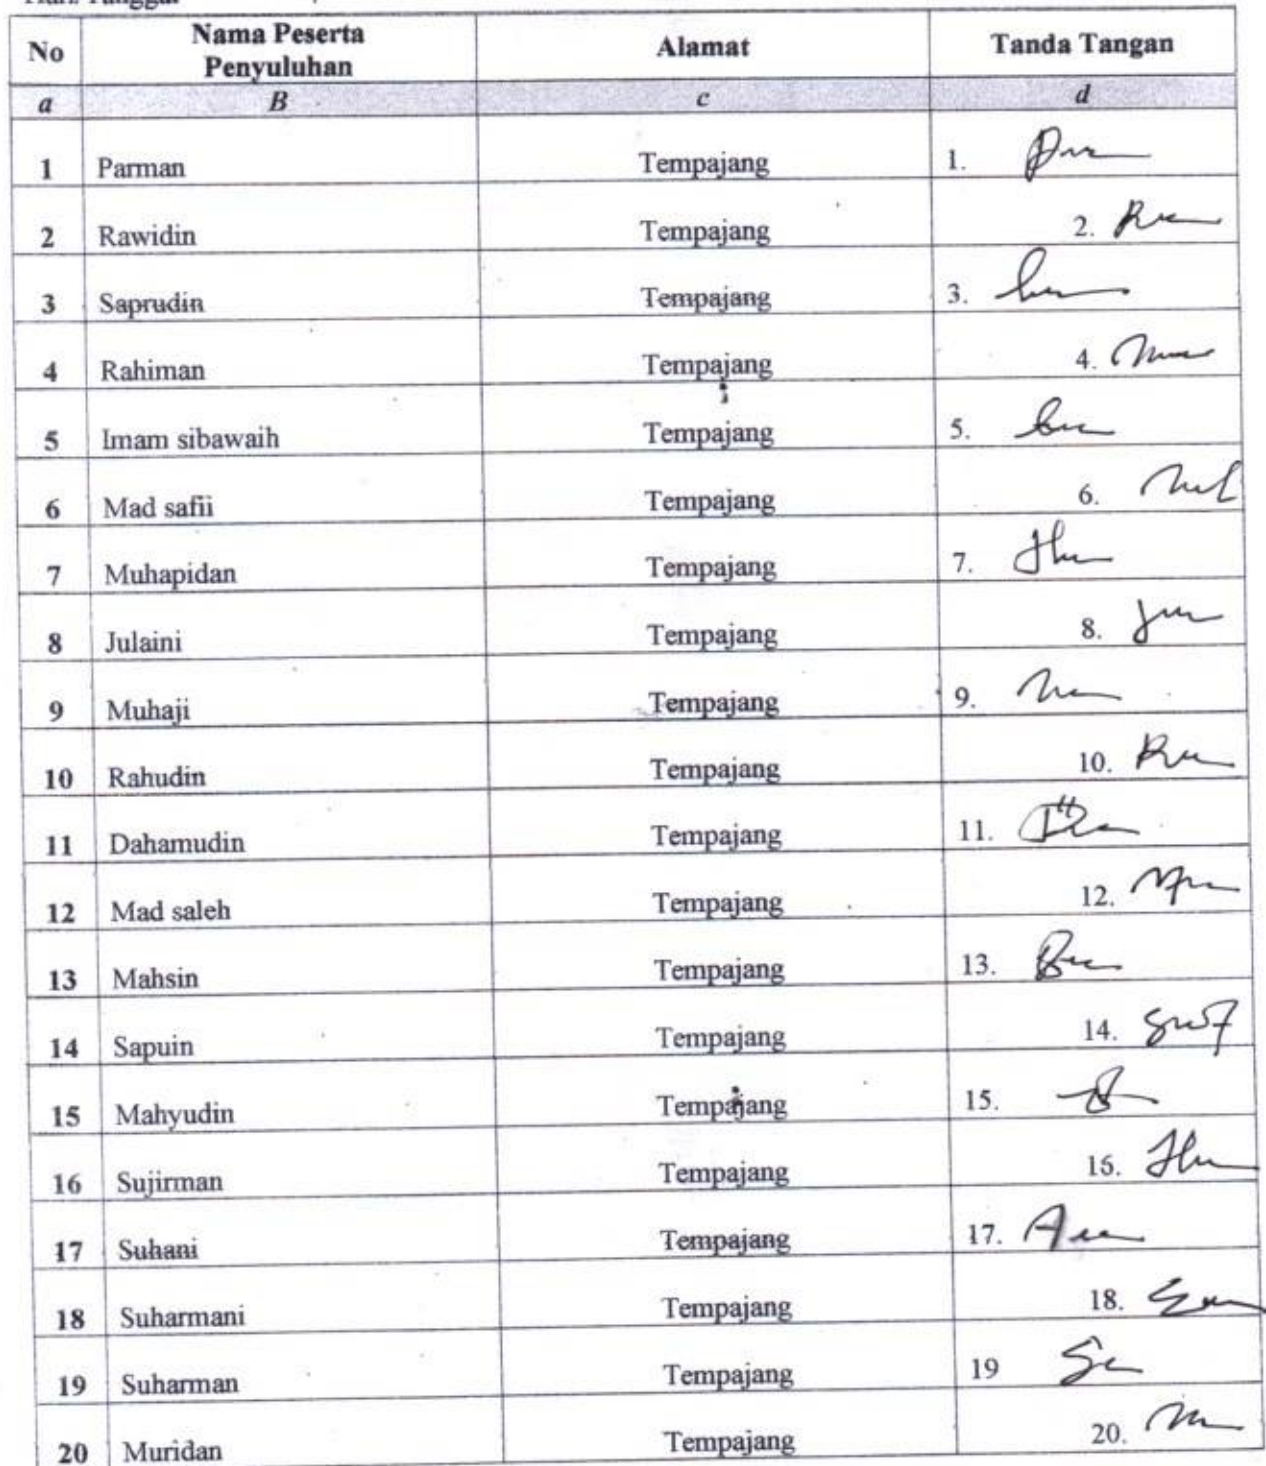 Hari/Tanggal
No Nama Peserta Penyuluhan Alamat Tanda Tangan
a B c d
1 Parman Tempajang 1.
2 Rawidin Tempajang 2.
3 Saprudin Tempajang 3.
4 Rahiman Tempajang 4.
5 Imam sibawaih Tempajang 5.
6 Mad safii Tempajang 6.
7 Muhapidan Tempajang 7.
8 Julaini Tempajang 8.
9 Muhaji Tempajang 9.
10 Rahudin Tempajang 10.
11 Dahamudin Tempajang 11.
12 Mad saleh Tempajang 12.
13 Mahsin Tempajang 13.
14 Sapuin Tempajang 14.
15 Mahyudin Tempajang 15.
16 Sujirman Tempajang 16.
17 Suhani Tempajang 17.
18 Suharmani Tempajang 18.
19 Suharman Tempajang 19
20 Muridan Tempajang 20.